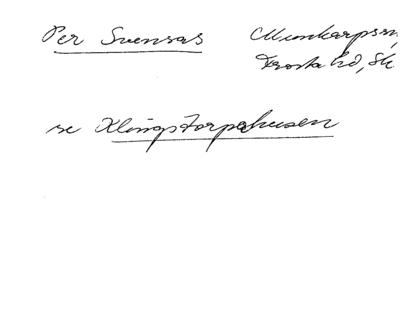 Per Svensas
Munkarpssn,
Frosta hd, Sk
se Klingstorpahusen